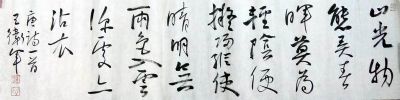 山光物
態弄春
暉莫為
輕陰便
擬歸縱使
晴明無
雨色入雲
深處亦
沾衣
唐詩一首
王衛軍